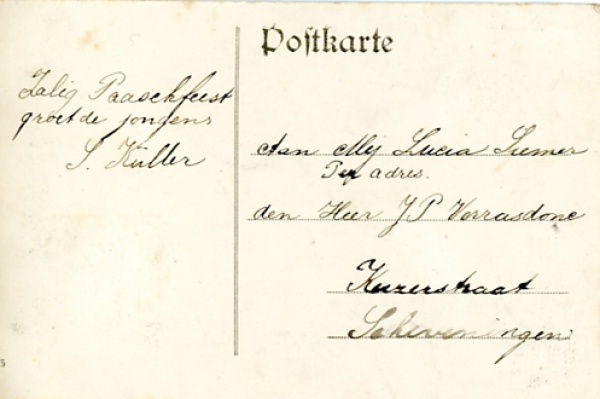 Postkarte
Zalig Paaschfeest
groet de jongens
S. Küller
Aan Mej Lucia Siemer
Per adres.
den Heer J P Verrasdonc
Keizerstraat
Scheveningen
5